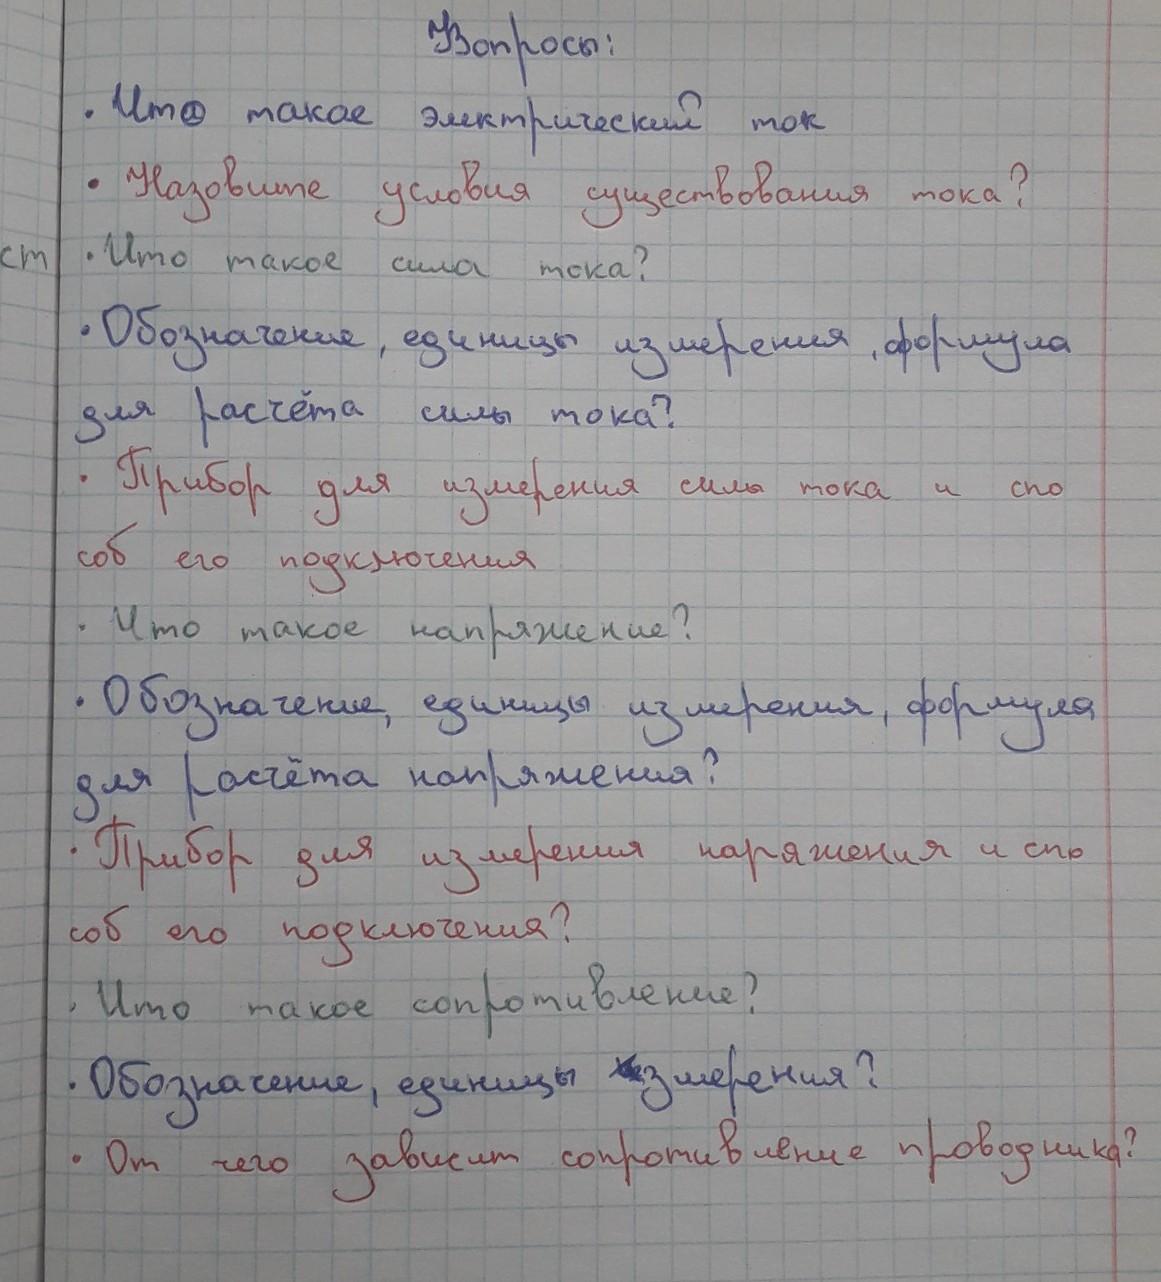 Вопросы:
• Что такое электрический ток
• Назовите условия существования тока?
ст
• Что такое сила тока?
• Обозначение, единицы измерения, формула
для расчёта силы тока?
• Прибор для измерения силы тока и спо
соб его подключения
• Что такое напряжение?
• Обозначение, единицы измерения, формула
для расчёта напряжения?
• Прибор для измерения наряжения и спо
соб его подключения?
• Что такое сопротивление?
• Обозначение, единицы измерения?
• От чего зависит сопротивление проводника?